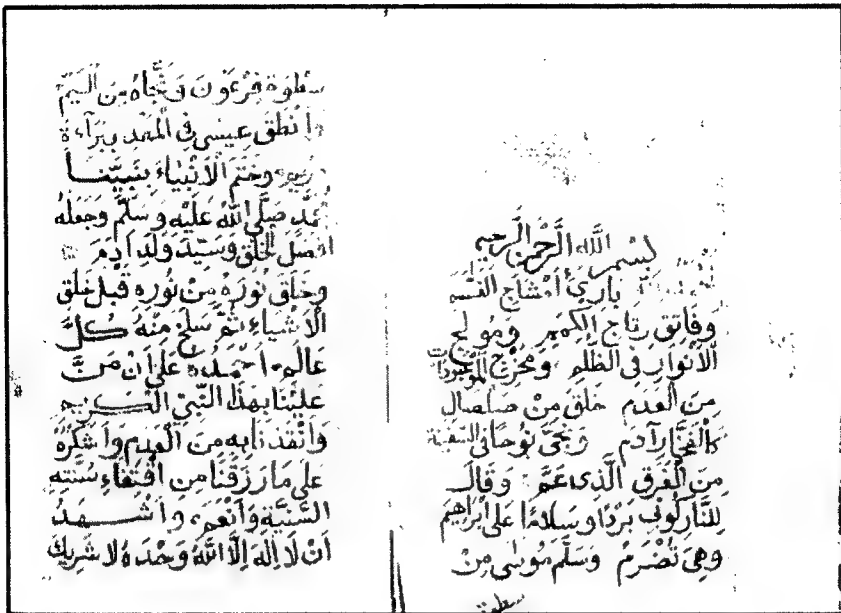 بسم الله الرحمن الرحيم
بارئ أمشاج النسم
وفاتق رتاج الكمم ومولج
الأنوار في الظلم ومخرج الموجودات
من العدم خلق من صلصال
كالفخار آدم ونجى نوحا في السفينة
من الغرق الذي عم وقال
للنار كوني بردا وسلاما على إبراهيم
وهي تضرم وسلم موسى من
سطوة
سطوة فرعون ونجاه من اليم
وأنطق عيسى في المهد ببراءة
وختم الأنبياء بنبينا
محمد صلى الله عليه وسلم وجعله
أفضل الخلق وسيد ولد آدم
وخلق نوره من نوره قبل خلق
الأشياء ثم سلخ منه كل
عالم أحمده على أن من
علينا بهذا النبي الكريم
وأنقذنا به من العدم وأشكره
على ما رزقنا من اقتفاء سنته
السنية وأنعم وأشهد
أن لا إله إلا الله وحده لا شريك